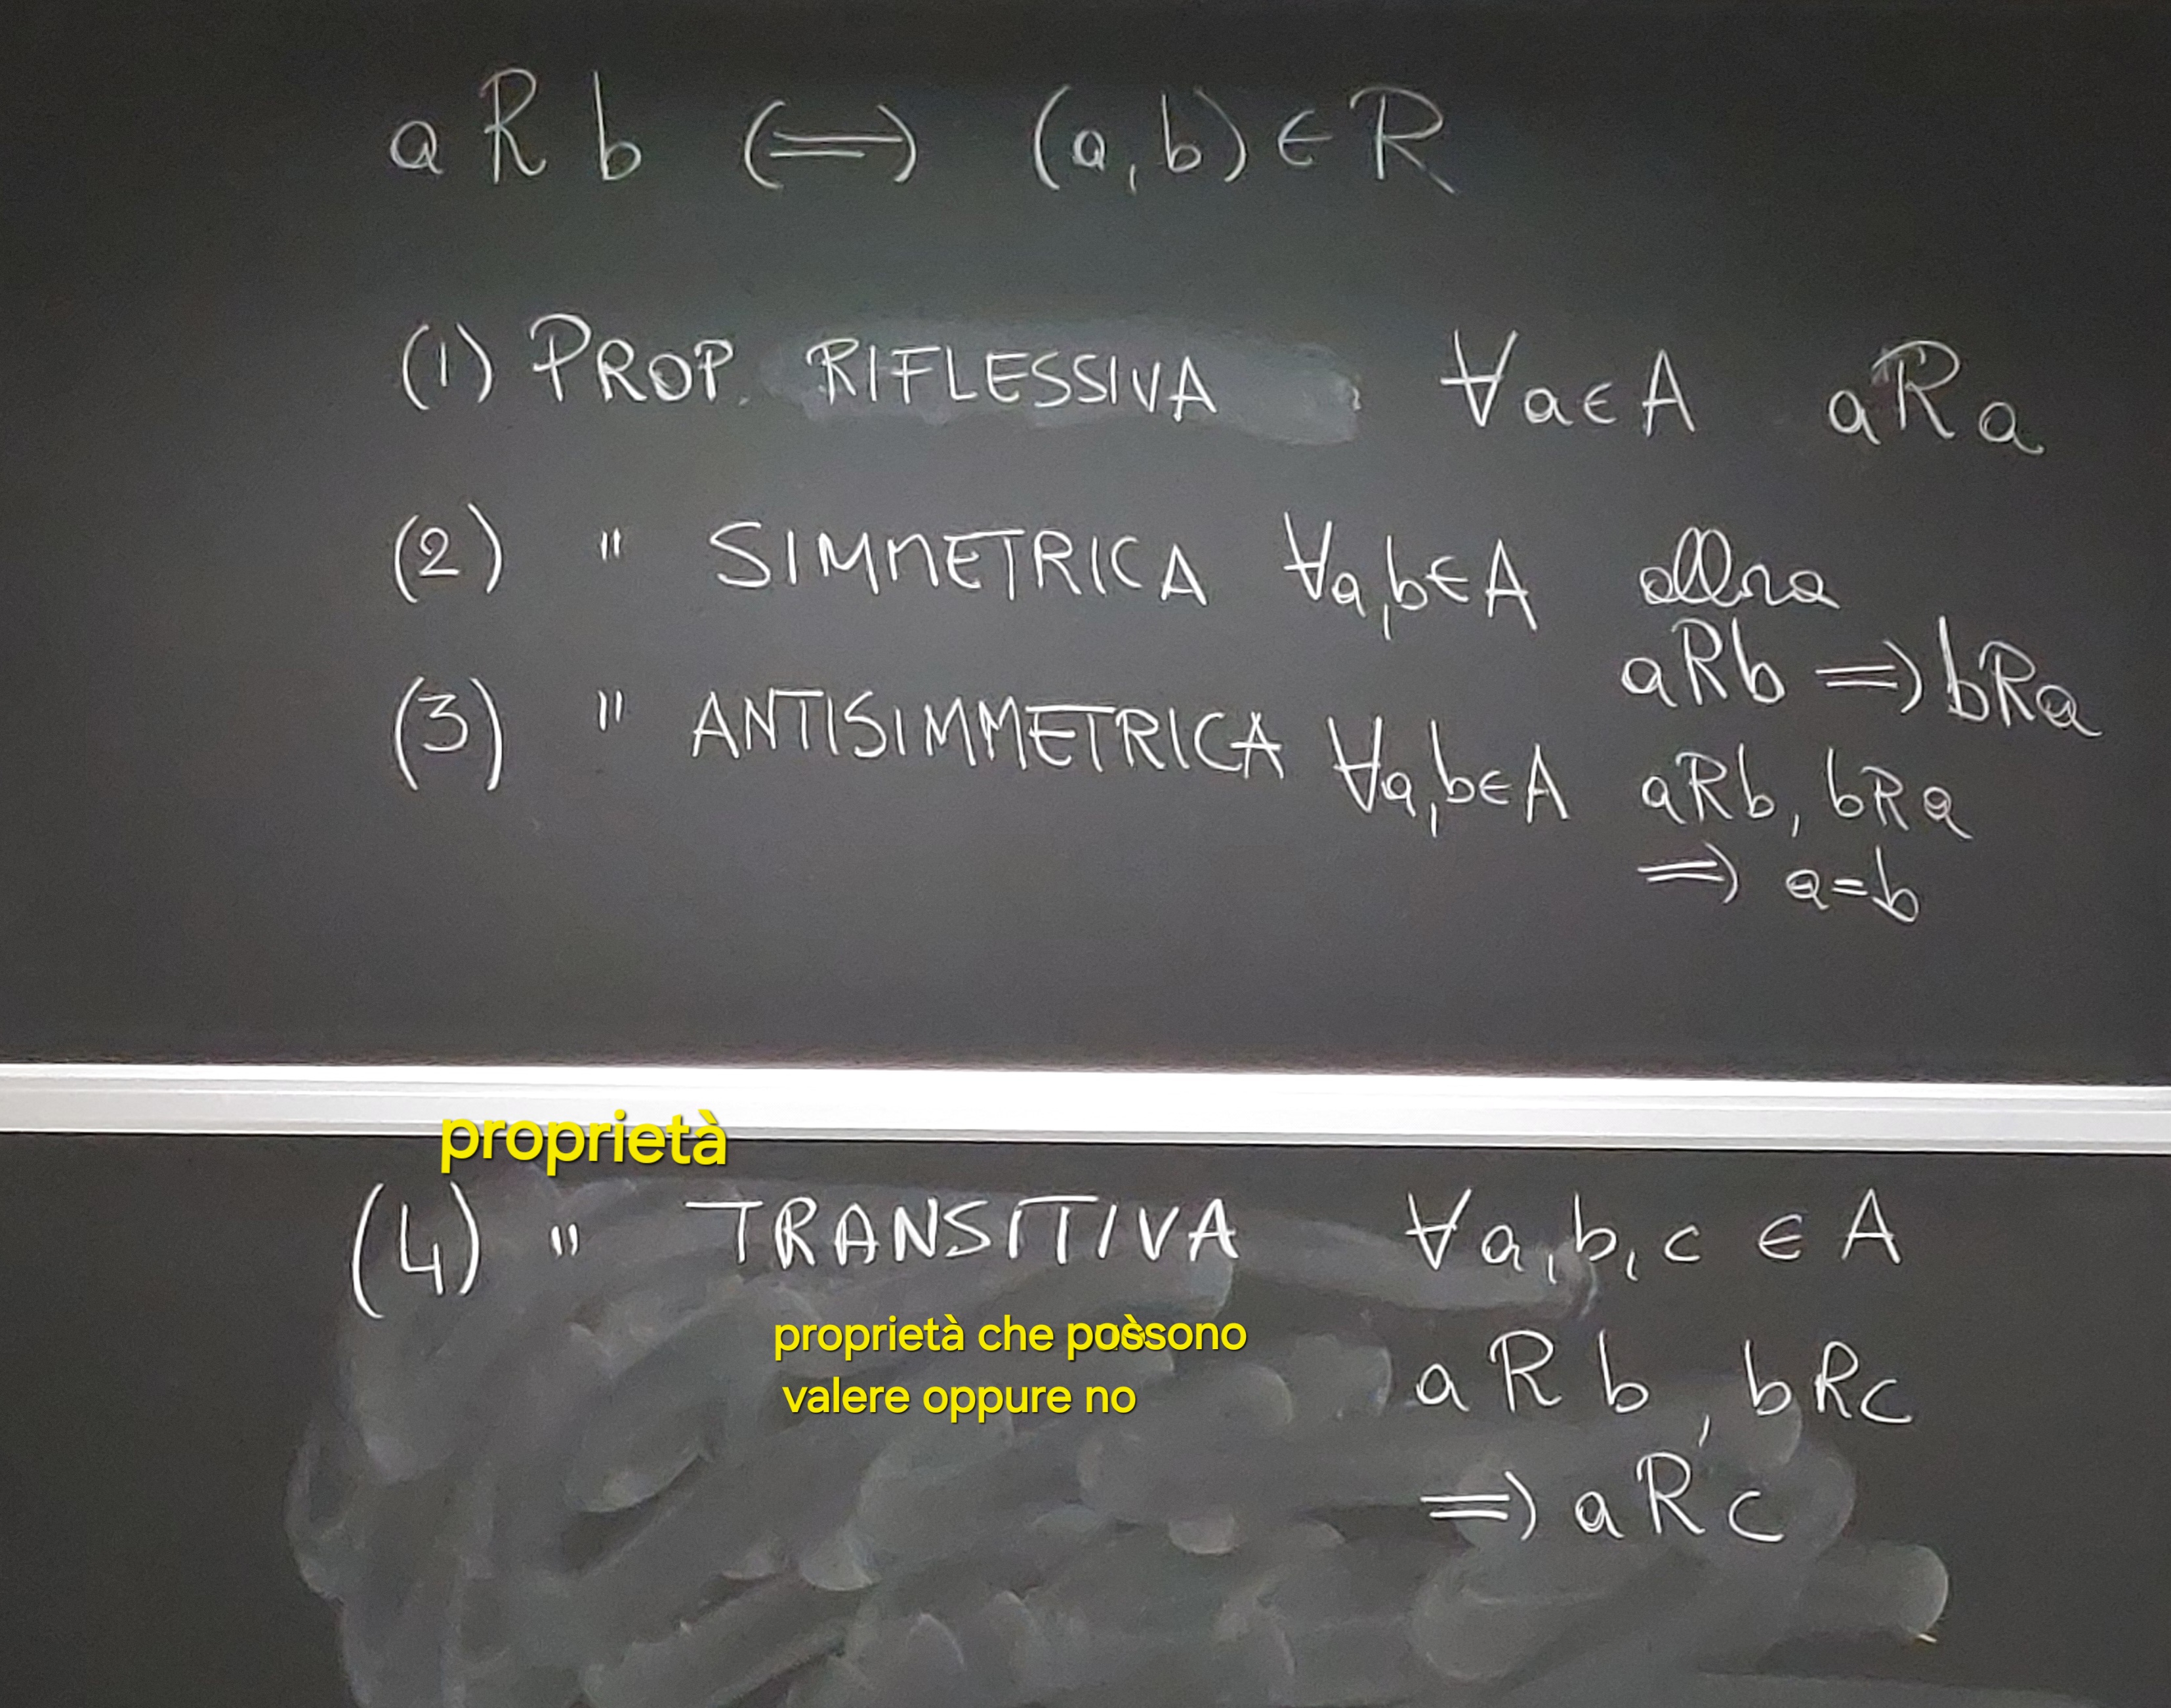 a R b (=) (a,b) ∈ R
(1) PROP. RIFLESSIVA ∀a∈A aRa
(2) " SIMMETRICA ∀a,b∈A allora
aRb => bRa
(3) " ANTISIMMETRICA ∀a,b∈A aRb, bRa
=> a=b
proprietà
(4) " TRANSITIVA ∀a,b,c ∈ A
proprietà che possono
a R b, bRc
valere oppure no
=> aRc